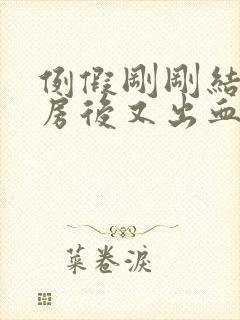 例假剛剛結
房後又出血
菜卷淚